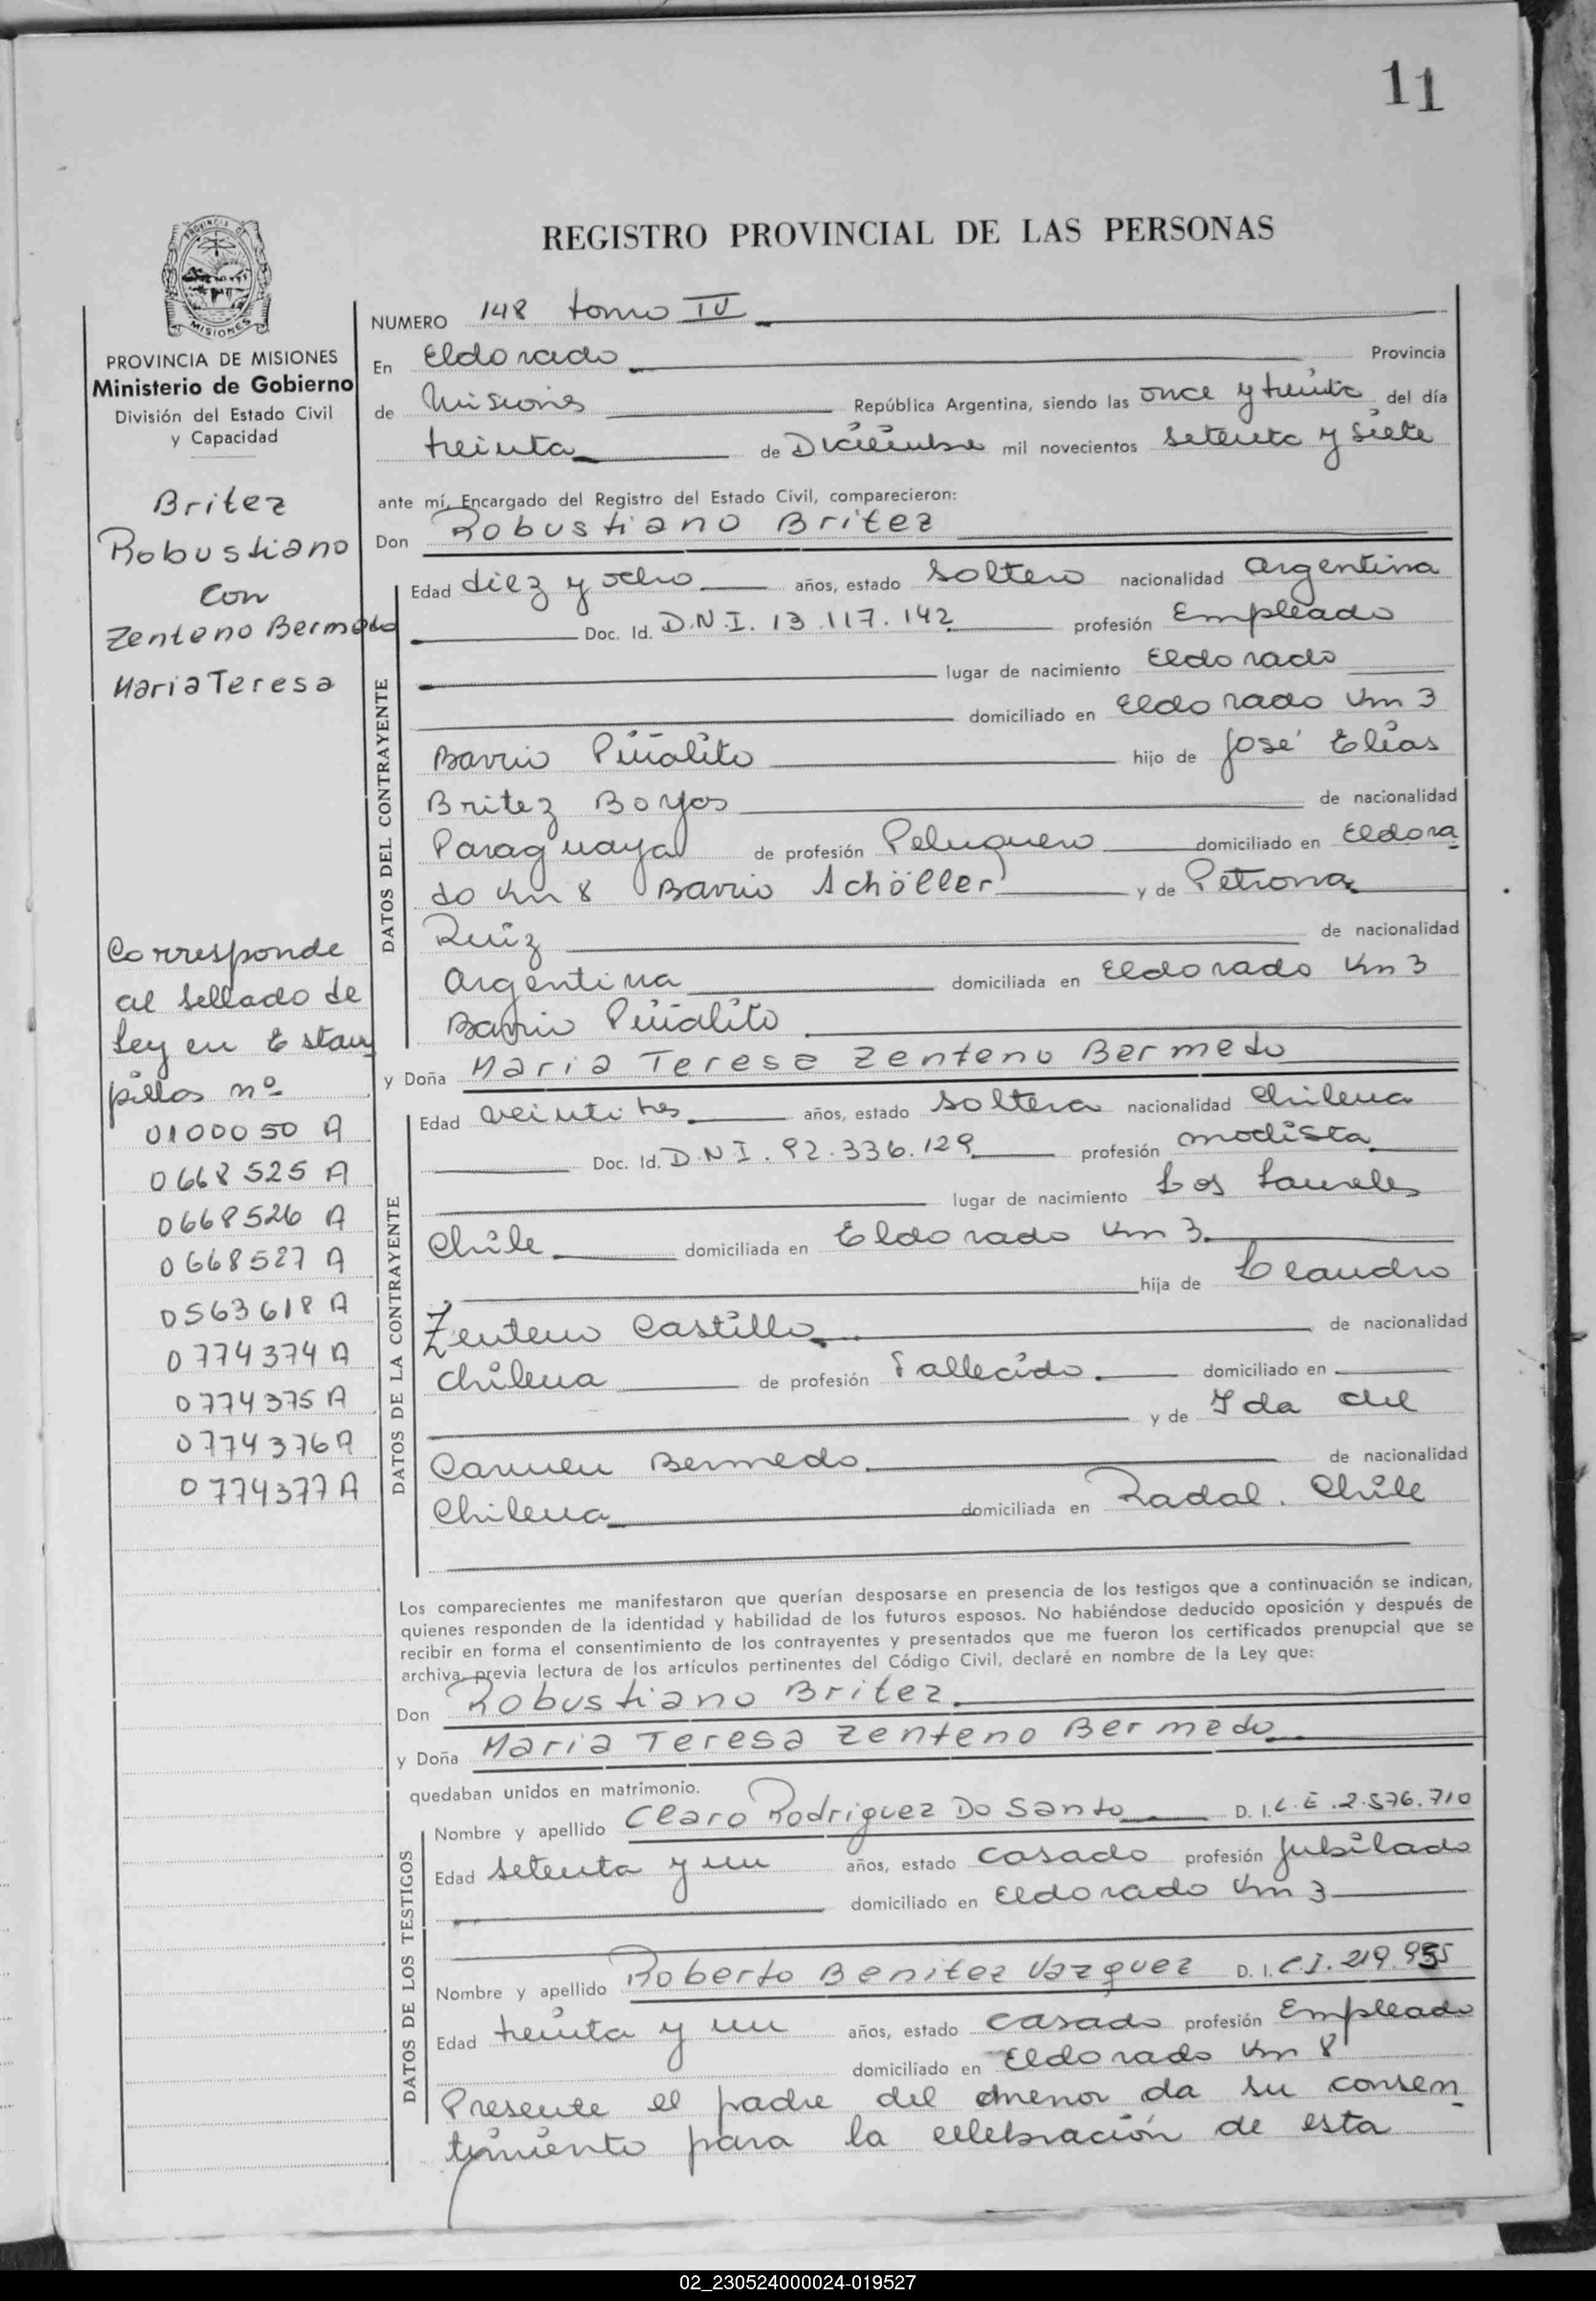 11
REGISTRO PROVINCIAL DE LAS PERSONAS
PROVINCIA DE
MISIONES
PROVINCIA DE MISIONES
Ministerio de Gobierno
División del Estado Civil
y Capacidad
Britez
Robustiano
Con
Zenteno Bermedo
Maria Teresa
Corresponde
al sellado de
Ley en Estam
pillas nº
0100050 A
0668525 A
0668526 A
0668527 A
0563618 A
0774374 A
0774375 A
0774376 A
0774377 A
NUMERO 148 tomo IV
En Eldorado Provincia
de Misiones República Argentina, siendo las once y treinta del día
treinta de Diciembre mil novecientos setenta y siete
ante mí, Encargado del Registro del Estado Civil, comparecieron:
Don Robustiano Britez
DATOS DEL CONTRAYENTE
Edad diez y ocho años, estado soltero nacionalidad argentina
Doc. Id. D.N.I. 13.117.142 profesión Empleado
lugar de nacimiento Eldorado
domiciliado en Eldorado Km 3
Barrio Piñalito hijo de José Elias
Britez Bogas de nacionalidad
Paraguaya de profesión Peluquero domiciliado en Eldora
do Km 8 Barrio Schöller y de Petrona
Ruiz de nacionalidad
Argentina domiciliada en Eldorado Km 3
Barrio Piñalito
y Doña Maria Teresa Zenteno Bermedo
DATOS DE LA CONTRAYENTE
Edad veintitres años, estado soltera nacionalidad Chilena
Doc. Id. D.N.I. 92.336.129 profesión modista
lugar de nacimiento Los Laureles
Chile domiciliada en Eldorado Km 3
hija de Leandro
Zenteno Castillo de nacionalidad
chilena de profesión Fallecido domiciliado en
y de Ida del
Carmen Bermedo de nacionalidad
Chilena domiciliada en Radal. Chile
Los comparecientes me manifestaron que querían desposarse en presencia de los testigos que a continuación se indican,
quienes responden de la identidad y habilidad de los futuros esposos. No habiéndose deducido oposición y después de
recibir en forma el consentimiento de los contrayentes y presentados que me fueron los certificados prenupcial que se
archiva previa lectura de los artículos pertinentes del Código Civil, declaré en nombre de la Ley que:
Don Robustiano Britez
y Doña Maria Teresa Zenteno Bermedo
quedaban unidos en matrimonio.
DATOS DE LOS TESTIGOS
Nombre y apellido Claro Rodriguez Do Santo D. I. L.E. 2.576.710
Edad setenta y un años, estado casado profesión jubilado
domiciliado en Eldorado Km 3
Nombre y apellido Roberto Benitez Vazquez D. I. C.I. 219.955
Edad treinta y un años, estado casado profesión Empleado
domiciliado en Eldorado Km 8
Presente el padre del menor da su consen
timiento para la celebración de esta
02_230524000024-019527